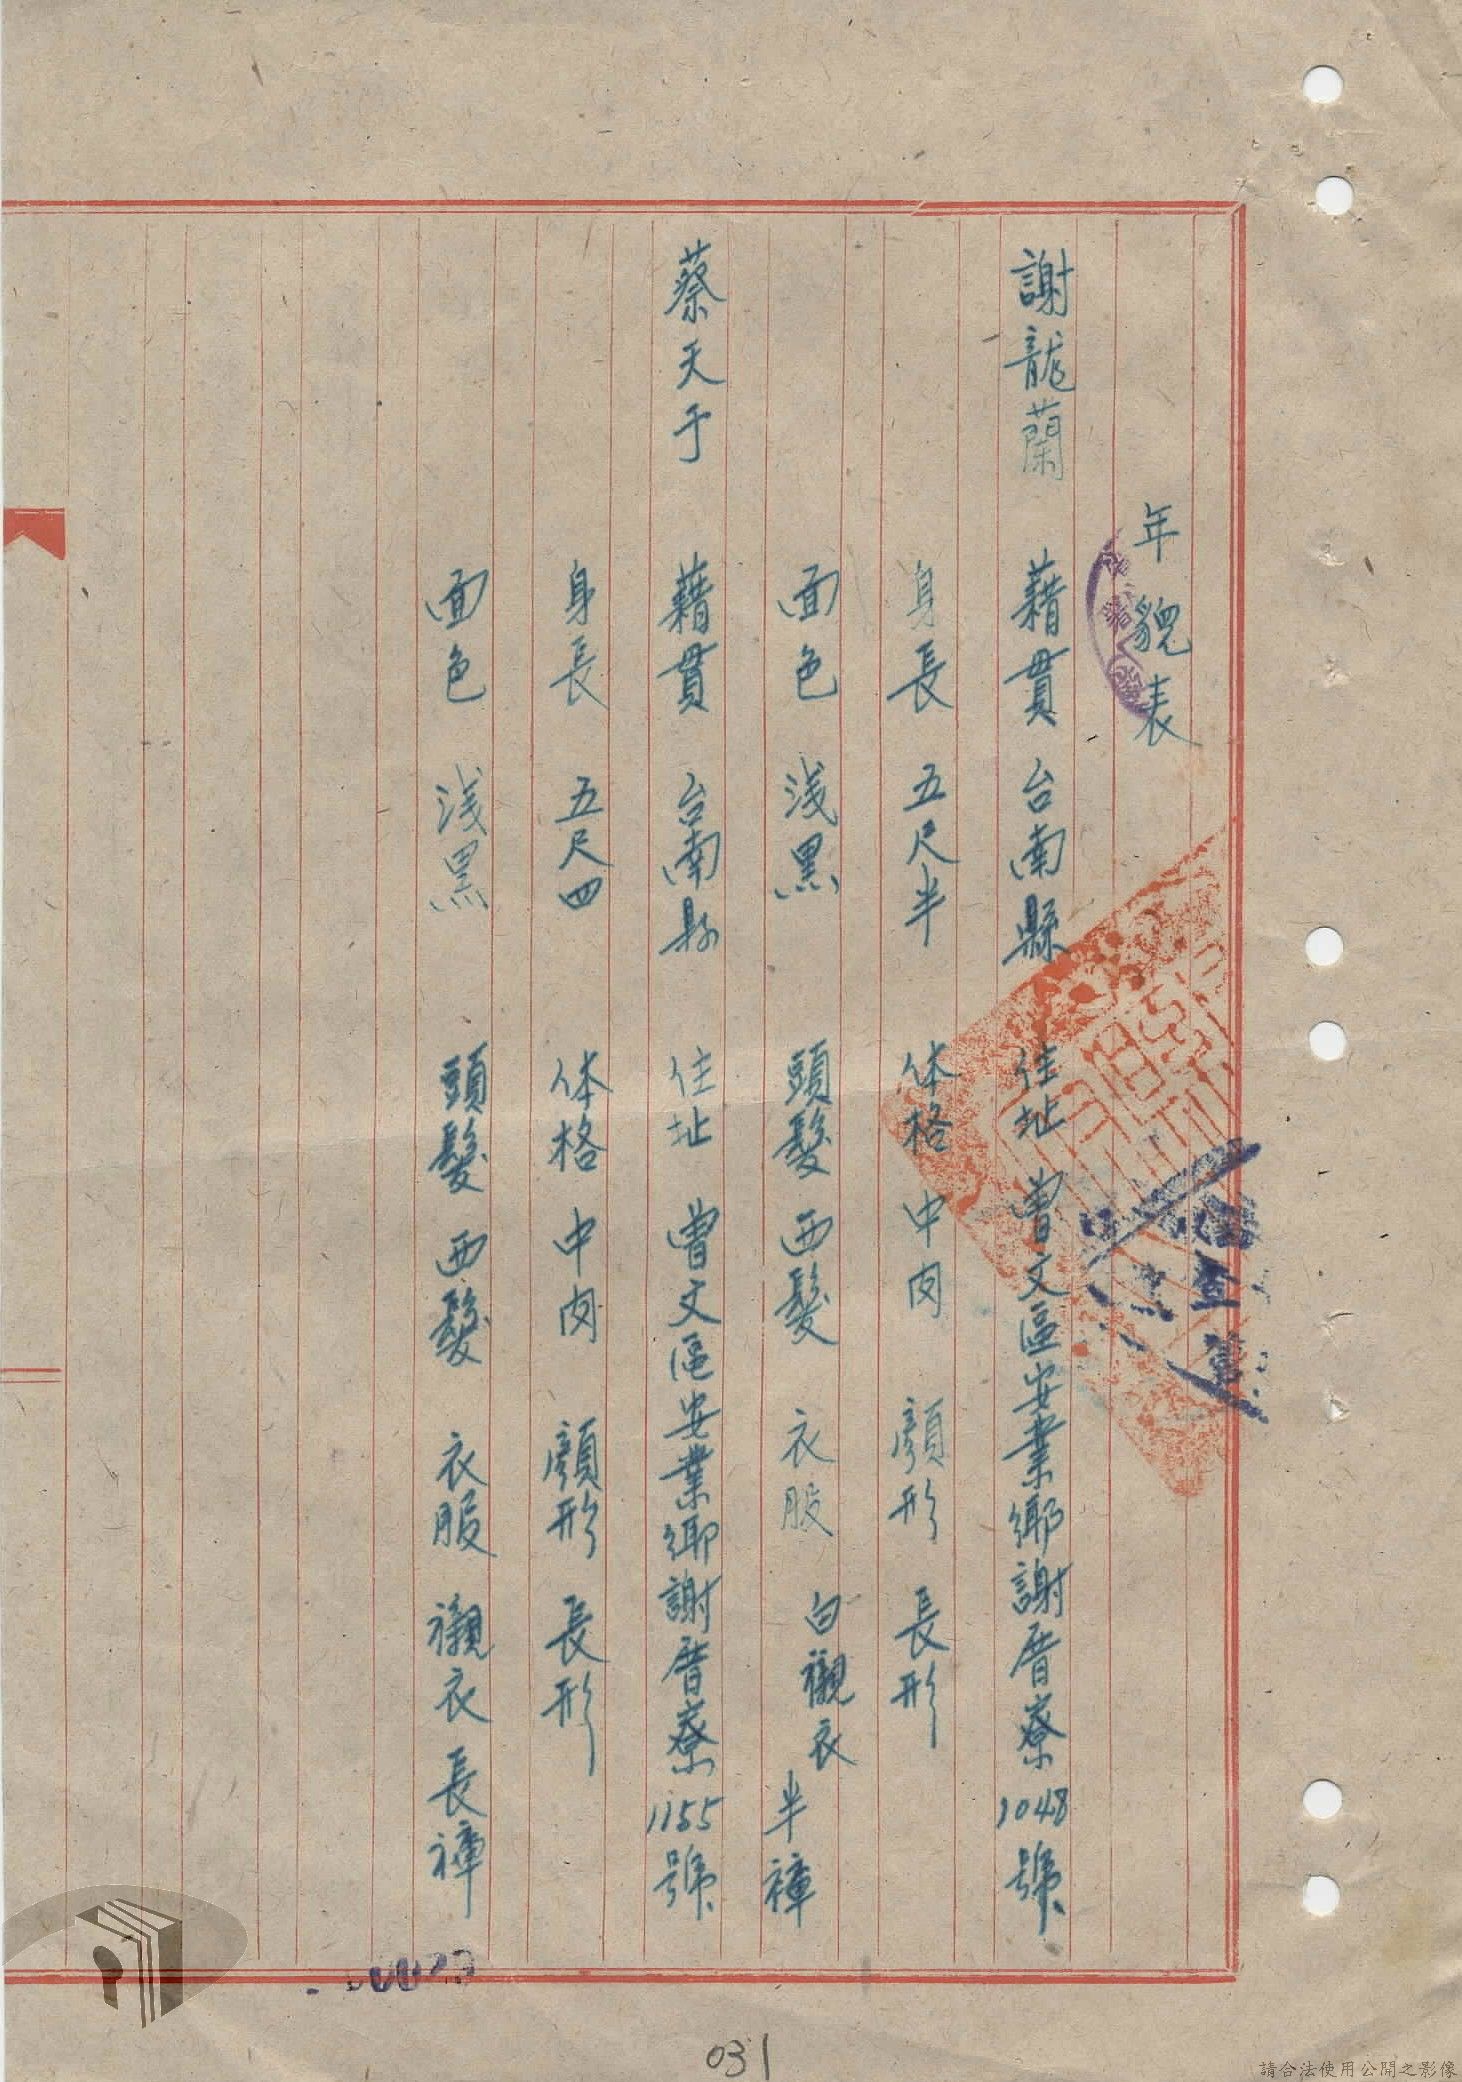 年貌表
謝龍蘭 藉貫 台南縣 住址 曾文區安業鄉謝厝寮1048號
身長 五尺半 体格 中肉 顏形 長形
面色 浅黒 頭髮 西髮 衣服 白襯衣 半褲
蔡天于 藉貫 台南縣 住址 曾文區安業鄉謝厝寮1155號
身長 五尺四 体格 中肉 顏形 長形
面色 浅黑 頭髮 西髮 衣服 襯衣 長褲
031
請合法使用公開之影像